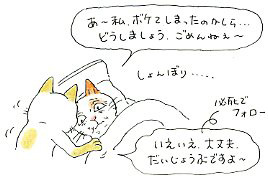 あ〜私、ボケてしまったのかしら…
どうしましょう、ごめんねぇ〜
しょんぼり.....
必死で
フォロー
いえいえ、大丈夫、
だいじょうぶですよ〜